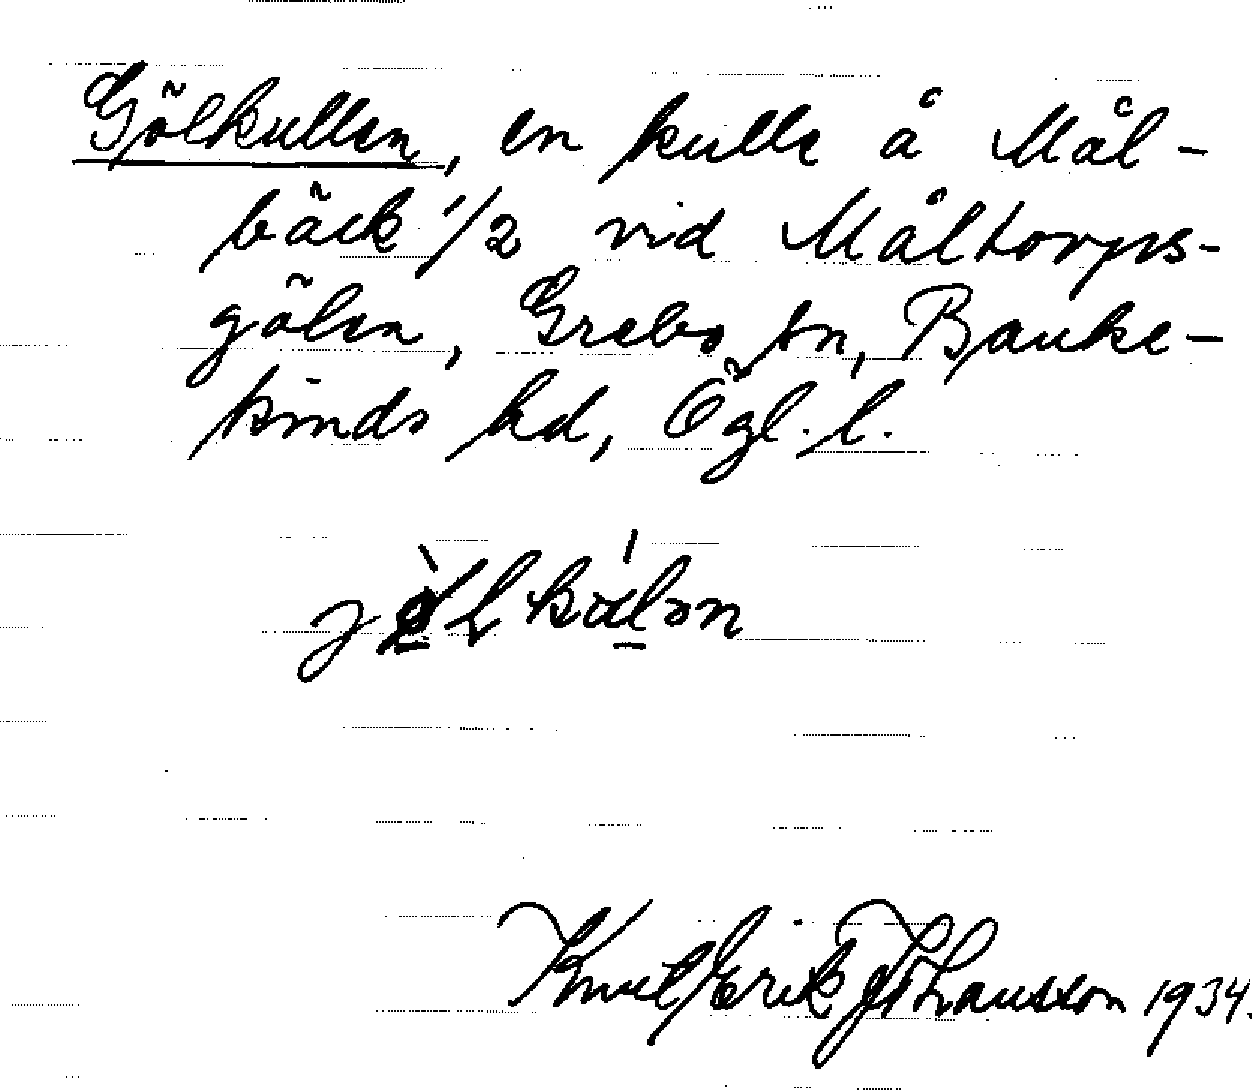 Gölkullen, en kulle å Mål-
bäck 1/2 vid Måltorps-
gölen, Grebo sn, Banke-
kinds hd, Ögl. l.
Knut Erik Johansson 1934.